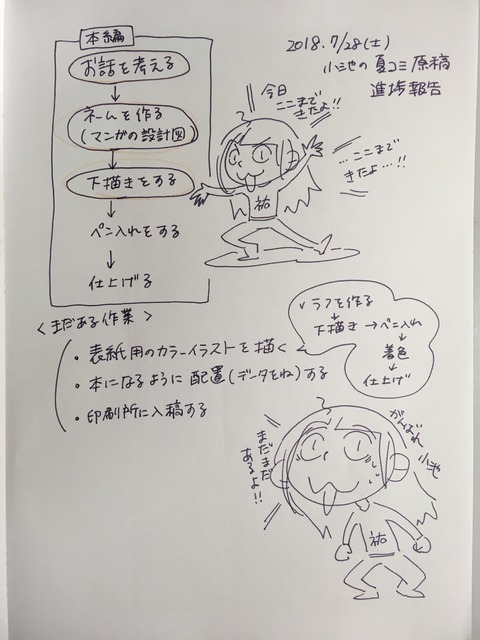 2018.7/28(土)
小池の夏コミ原稿
進捗報告
本編
お話を考える
ネームを作る
(マンガの設計図)
下描きをする
ペン入れをする
仕上げる
今日
ここまで
きたよ!!
…ここまで
きたよ…!!
祐
<まだある作業>
・表紙用のカラーイラストを描く
・本になるように配置(データをね)する
・印刷所に入稿する
✓ラフを作る
下描き→ペン入れ
着色
仕上げ
まだまだ
あるよ!!
がんばれ
小池
祐